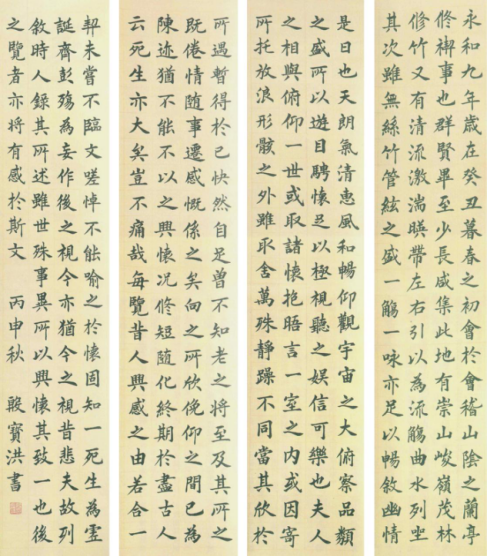 永和九年歲在癸丑暮春之初會於會稽山陰之蘭亭
修禊事也群賢畢至少長咸集此地有崇山峻嶺茂林
修竹又有清流激湍暎帶左右引以為流觴曲水列坐
其次雖無絲竹管絃之盛一觴一咏亦足以暢敘幽情
是日也天朗氣清惠風和暢仰觀宇宙之大俯察品類
之盛所以遊目騁懷足以極視聽之娛信可樂也夫人
之相與俯仰一世或取諸懷抱晤言一室之內或因寄
所托放浪形骸之外雖取舍萬殊靜躁不同當其欣於
所遇暫得於己怏然自足曾不知老之將至及其所之
既倦情隨事遷感慨係之矣向之所欣俛仰之間已為
陳迹猶不能不以之興懷況修短隨化終期於盡古人
云死生亦大矣豈不痛哉每覽昔人興感之由若合一
契未嘗不臨文嗟悼不能喻之於懷固知一死生為虛
誕齊彭殤為妄作後之視今亦猶今之視昔悲夫故列
敘時人錄其所述雖世殊事異所以興懷其致一也後
之覽者亦將有感於斯文 丙申秋 殷寶洪書